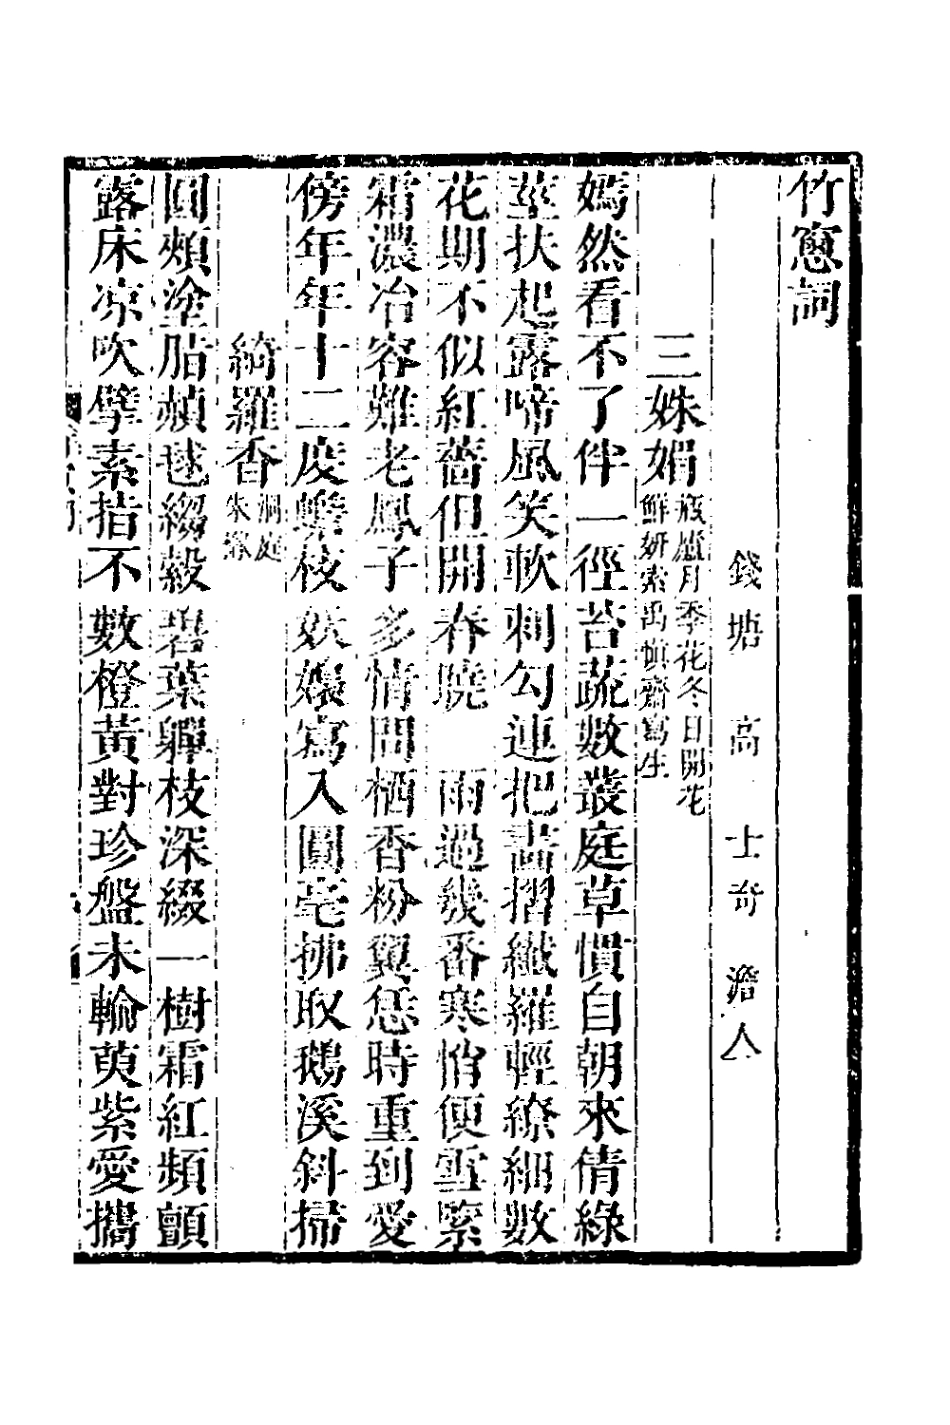 竹窻詞
錢塘　高　士奇　澹人
三姝媚
㾗廬月季花冬日開花
鮮妍索禹慎齋寫生
嫣然看不了伴一徑苔蔬數叢庭草慣自朝來倩綠
莖扶起露啼風笑軟刺勾連把畫摺纖羅輕繚細數
花期不似紅薔但開春曉　雨過幾番寒悄便雪緊
霜濃冶容難老鳳子多情問栖香粉翼恁時重到愛
傍年年十二度蟾枝妖嬝寫入圖毫拂取鵝溪斜掃
綺羅香
洞庭
朱橘
圓頰塗脂赬毬縐縠碧葉軃枝深綴一樹霜紅頻顫
露床凉吹擘素指不數橙黃對珍盤未輸萸紫愛攜